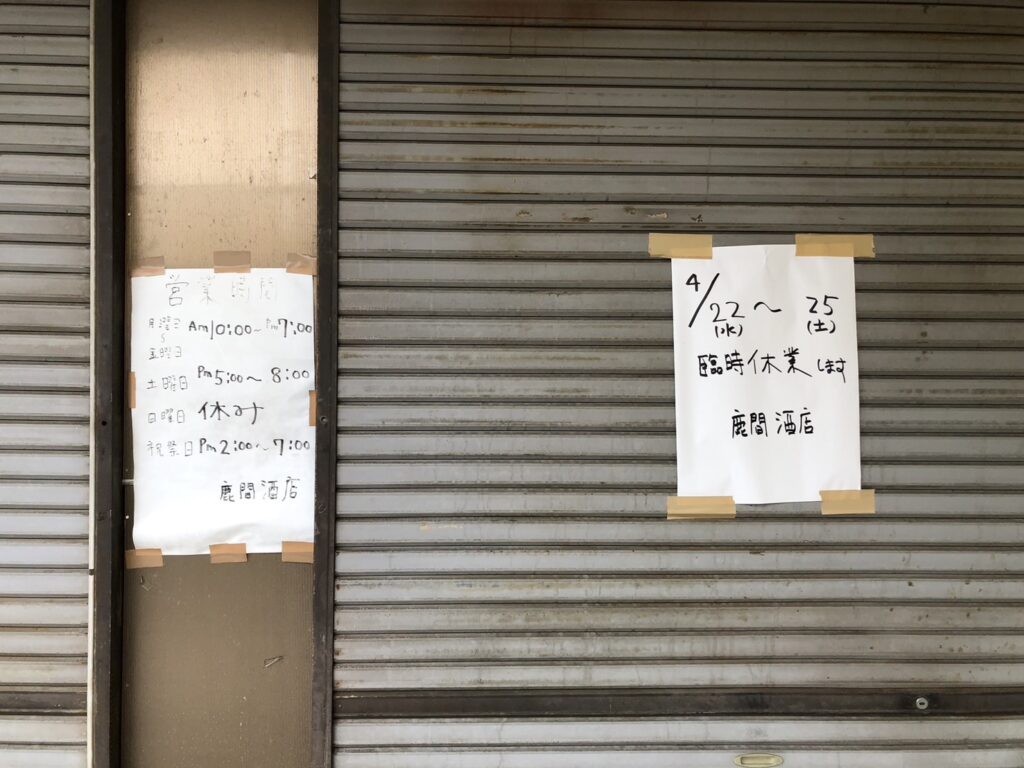 営業時間
月曜日 Am10:00~Pm7:00
〜
金曜日
土曜日 Pm5:00~8:00
日曜日 休み
祝祭日 Pm2:00~7:00
鹿間酒店
4/22~25
(水) (土)
臨時休業します
鹿間酒店